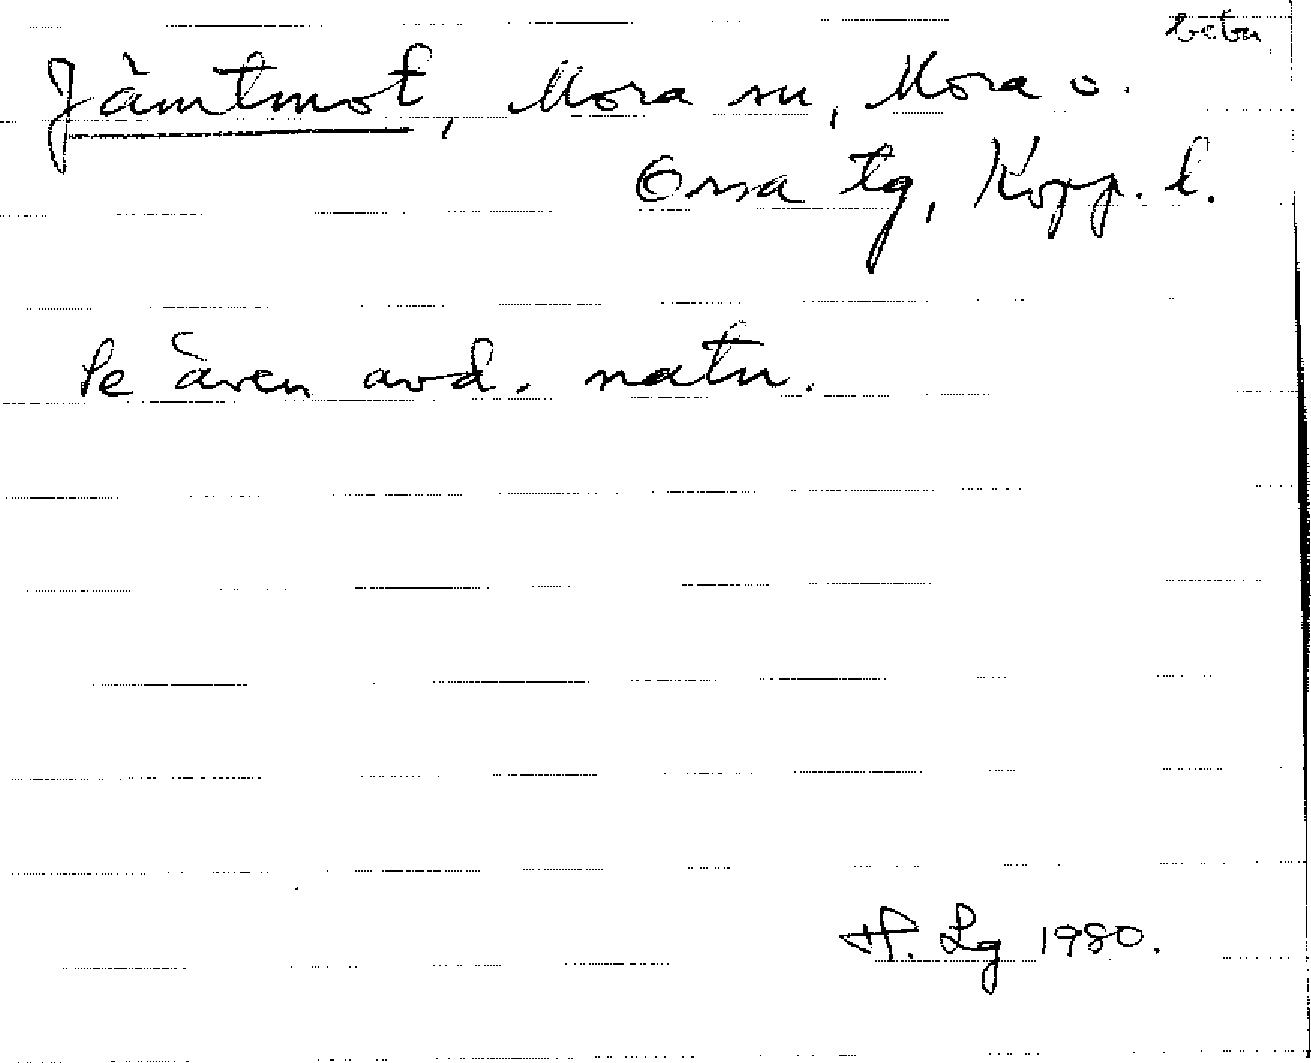 beba
Jämtmot, Mora sn, Mora o.
Orsa tg, Kopp. l.
Se även avd. natn.
H. Lg 1980.